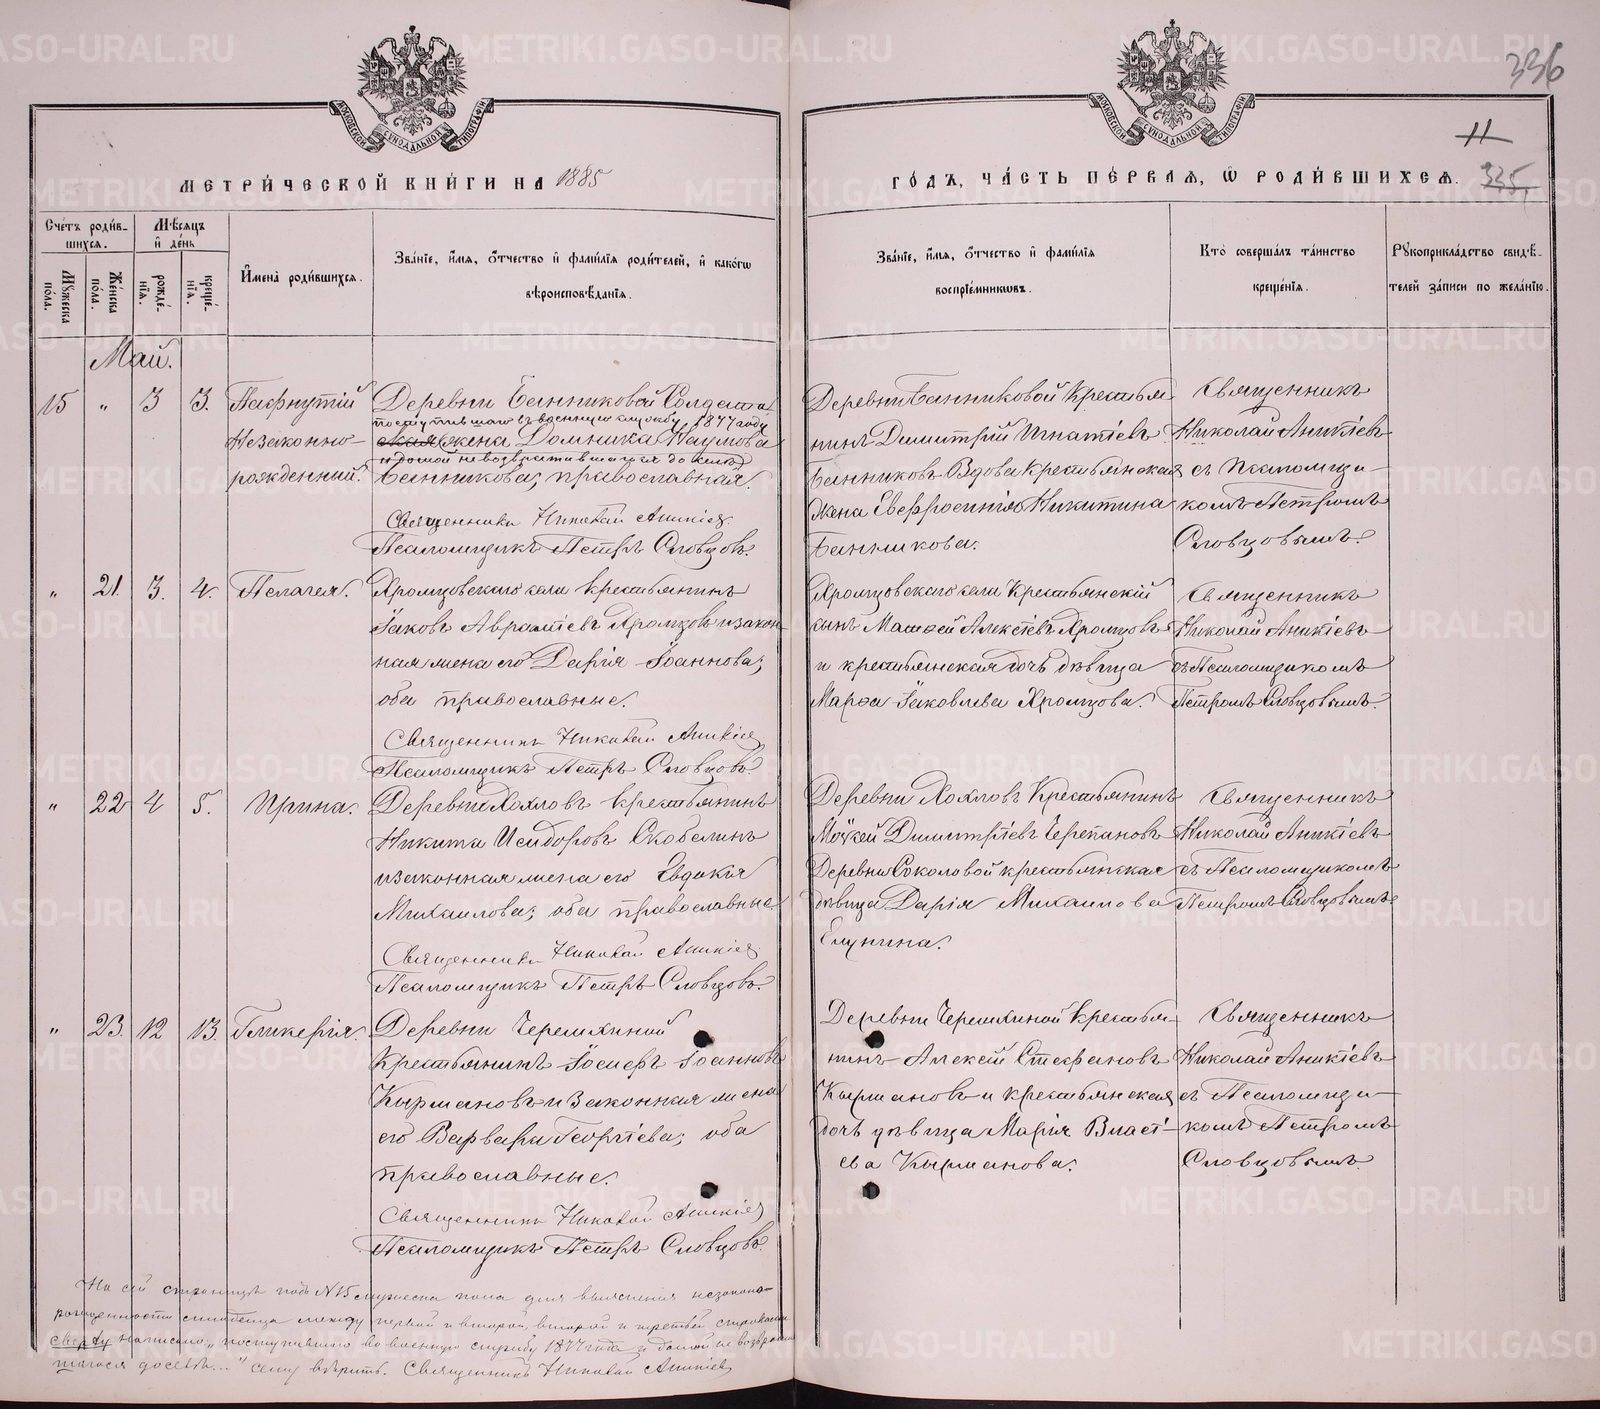 336
11
335
МЕТРИ́ЧЕСКОЙ КНИ́ГИ НА 1885
ГО́ДЪ, ЧА́СТЬ ПЕ́РВАѦ, Ѡ҆ РОДИ́ВШИХСѦ.
МОСКОВСКОЙ СѴНОДАЛЬНОЙ ТИПОГРАФІИ
МОСКОВСКОЙ СѴНОДАЛЬНОЙ ТИПОГРАФІИ
Сче́тъ роди́вшихсѧ.
Мꙋ́жеска по́ла.
Же́нска по́ла.
Мѣ́сѧцъ и҆ де́нь
рожде́нїѧ.
креще́нїѧ.
И҆мена̀ роди́вшихсѧ.
Зва́нїе, и҆́мѧ, ѻ҆́тчество и҆ фами́лїѧ роди́телей, и҆ како́гѡ
вѣроисповѣ́данїѧ.
Зва́нїе, и҆́мѧ, ѻ҆́тчество и҆ фами́лїѧ
воспрїе́мникѡвъ.
Кто̀ соверша́лъ та́инство
креще́нїѧ.
Рꙋкоприкла́дство свидѣ́-
телей за́писи по жела́нїю.
Май.
15 " 3 3. Пафнутій
Незаконно-
рожденный.
Деревни Банниковой Солдатъ
поступившаго въ военную службу, 1877 году
ская жена Домника Наумова
и домой невозвратившагося до селѣ
Банникова, православная.
Священникъ Николай Аникіев
Псаломщикъ Петръ Словцовъ.
Деревни Банниковой Крестья-
нинъ Димитрій Игнатіевъ
Банниковъ. Вдова крестьянская
жена Евфросинія Никитина
Банникова.
Священникъ
Николай Аникіевъ
съ Псаломщи-
комъ Петромъ
Словцовымъ.
" 21. 3. 4. Пелагея.
Хромцовскаго села крестьянинъ
Іаковъ Авраміевъ Хромцовъ и закон-
ная жена его Дарія Іоаннова;
оба православные.
Священникъ Николай Аникіев
Псаломщикъ Петръ Словцовъ.
Хромцовскаго села Крестьянскій
сынъ Матѳей Алексѣевъ Хромцовъ
и крестьянская дочь дѣвица
Марѳа Іаковлева Хромцова.
Священникъ
Николай Аникіевъ
съ Псаломщикомъ
Петромъ Словцовымъ.
" 22 4 5. Ирина.
Деревни Хохловъ крестьянинъ
Никита Исидоровъ Скобелинъ
и законная жена его Евдокія
Михаилова; оба православные
Священникъ Николай Аникіев
Псаломщикъ Петръ Словцовъ.
Деревни Хохловъ Крестьянинъ
Моѵсей Димитріевъ Черепановъ
Деревни Соколовой крестьянская
дѣвица Дарія Михаилова
Елунина.
Священникъ
Николай Аникіевъ
съ Псаломщикомъ
Петромъ Словцовымъ
" 23. 12 13. Гликерія.
Деревни Черемхиной
Крестьянинъ Іосифъ Іоанновъ
Кырмановъ и законная жена
его Варвара Георгіева; оба
православные.
Священникъ Николай Аникіев
Псаломщикъ Петръ Словцовъ.
Деревни Черемхиной Крестья-
нинъ Алексій Стефановъ
Кырмановъ и крестьянская
дочь дѣвица Марія Власі-
ева Кырманова.
Священникъ
Николай Аникіевъ
съ Псаломщи-
комъ Петромъ
Словцовымъ.
На сей страницѣ подъ №15 мужеска пола для выясненія незаконно-
рожденности младенца между первой и второй, второй и третьей строками
сверху написано: „поступившаго во военную службу 1877 года и домой не возврати-
вшагося доселѣ..." сему вѣрить. Священникъ Николай Аникіев
METRIKI.GASO-URAL.RU